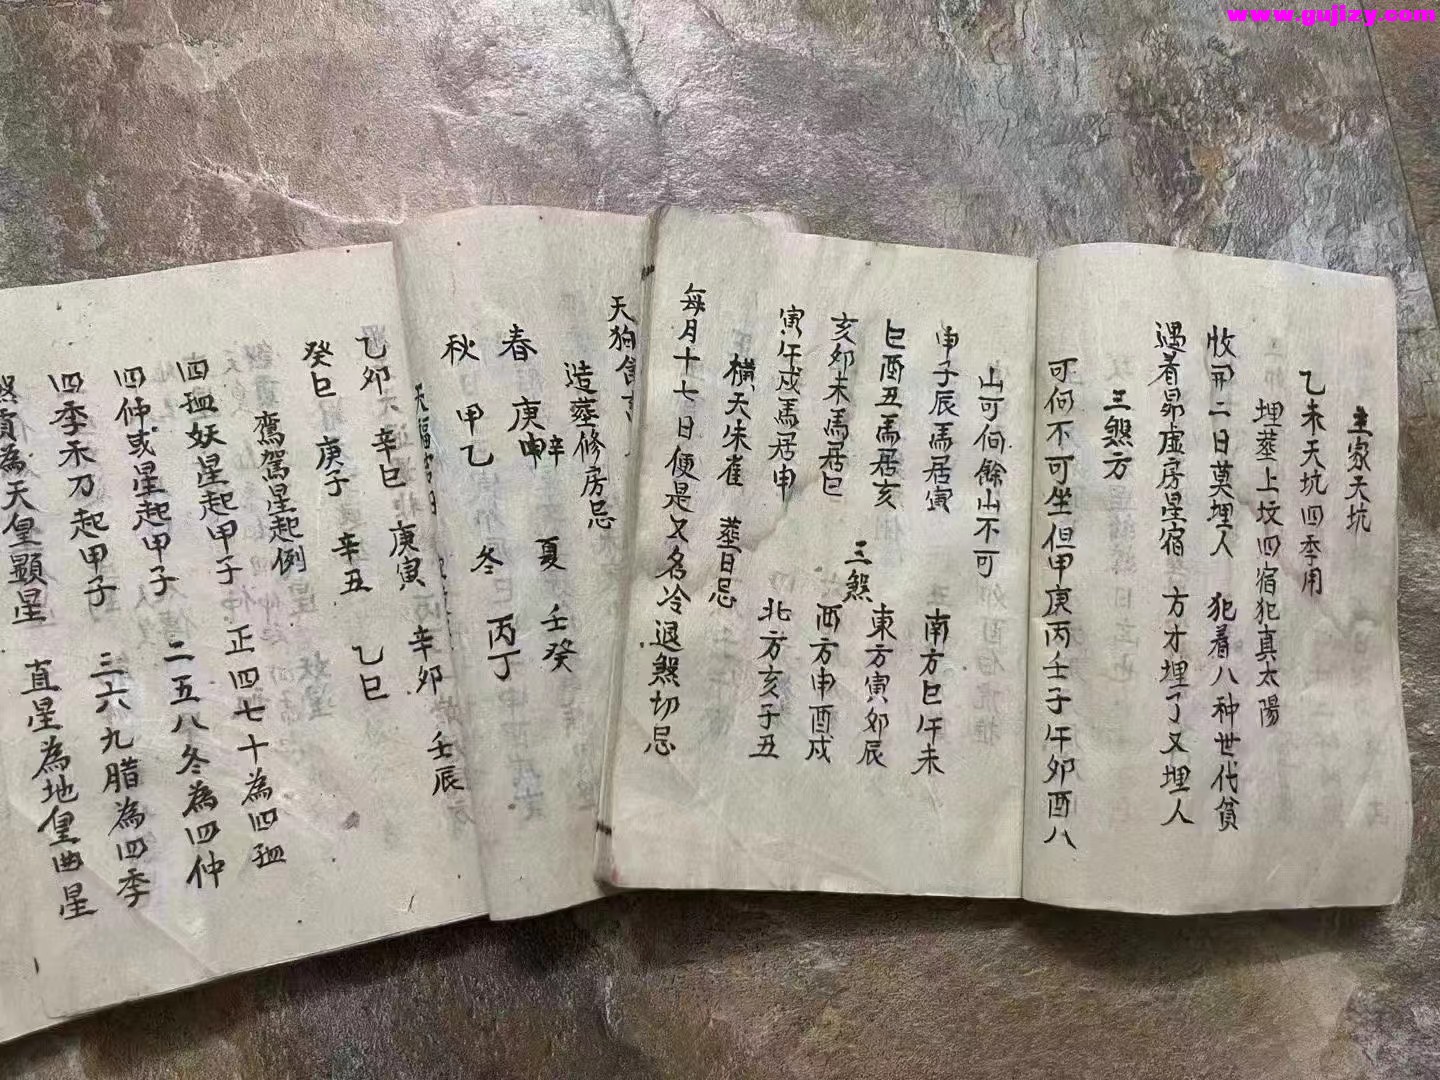 www.gujizy.com
主家天坑
乙未天坑四季用
埋葬上坟四宿犯真太陽
收開二日莫埋人 犯着八种世代貧
遇着昴虚房星宿 方才埋了又埋人
三煞方
可向不可坐但甲庚丙壬子午卯酉八
山可向餘山不可
申子辰馬居寅 南方巳午未
巳酉丑馬居亥 東方寅卯辰
三煞
亥卯未馬居巳 西方申酉戌
寅午戌馬居申 北方亥子丑
横天朱雀 葬日忌
每月十七日便是又名冷退煞切忌
天狗
造葬修房忌
春 庚申辛 夏 壬癸
秋 甲乙 冬 丙丁
天福
乙卯 辛巳 庚寅 辛卯 壬辰
癸巳 庚子 辛丑 乙巳
鸾駕星起例
四孟妖星起甲子 正四七十為四孟
四仲或星起甲子 二五八冬為四仲
四季禾刀起甲子 三六九腊為四季
煞貢為天皇顯星 直星為地皇曲星